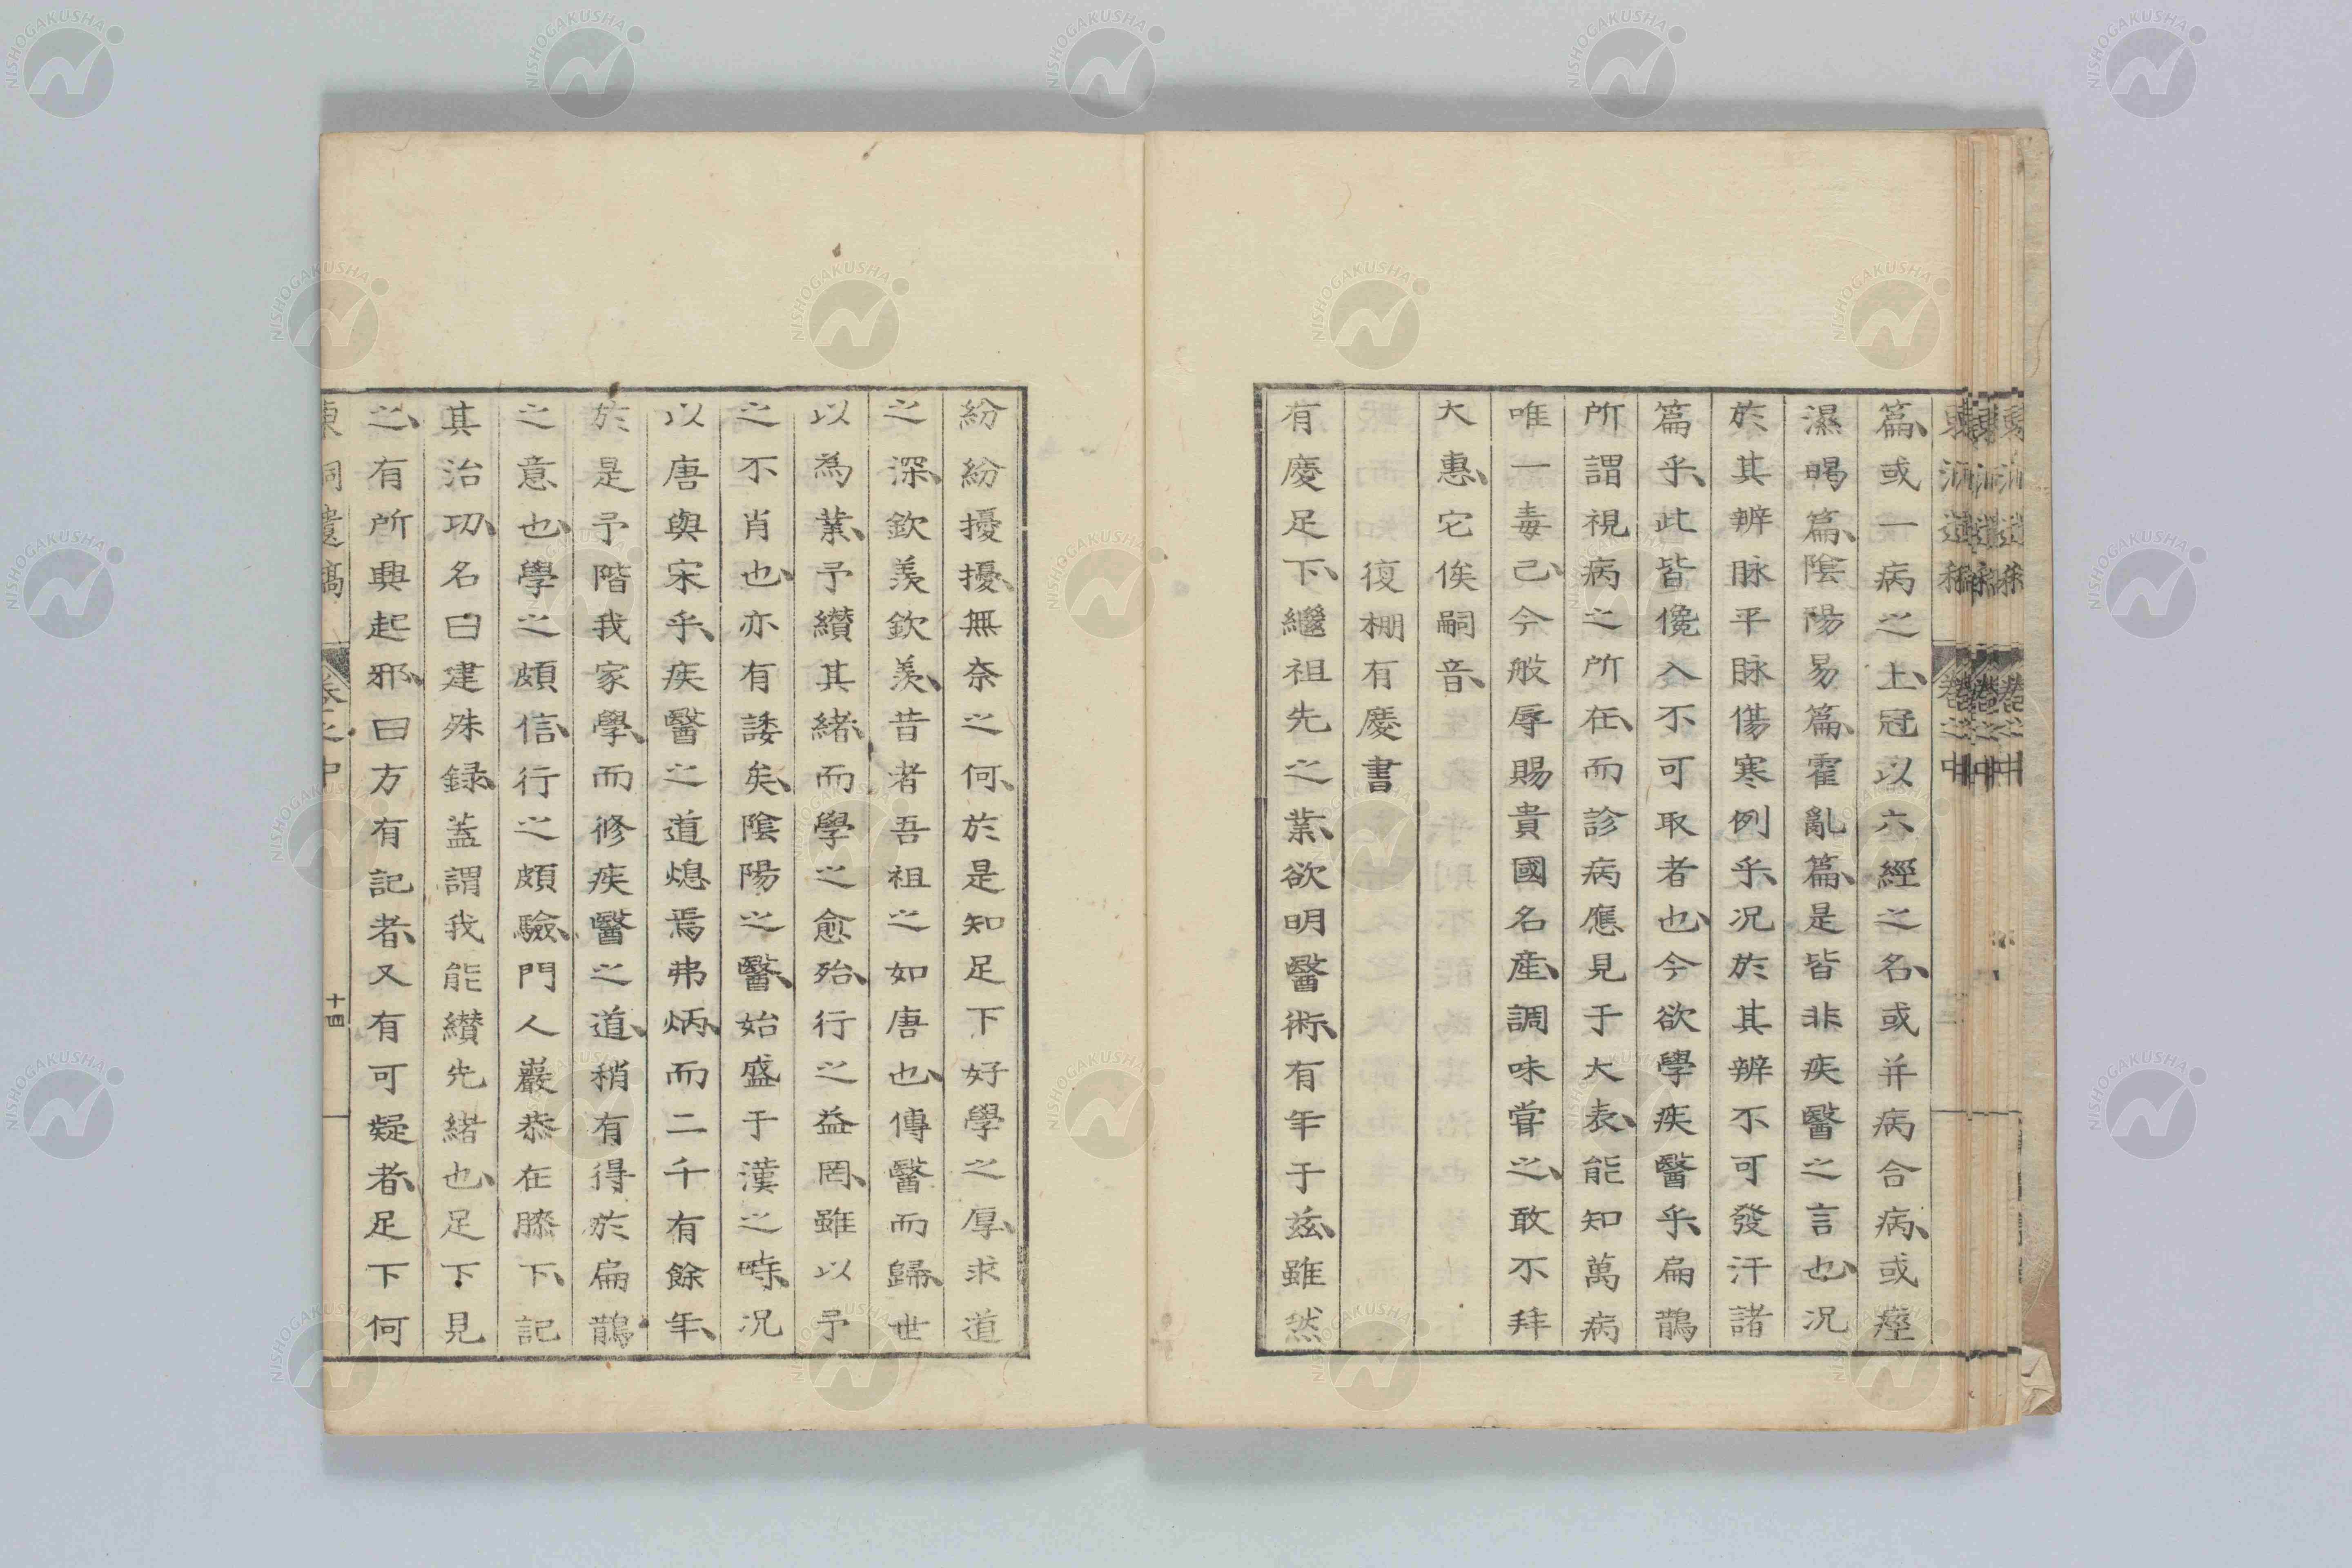 篇、或一病之上、冠以六經之名、或并病合病、或痙
濕暍篇、陰陽易篇、霍亂篇、是皆非疾醫之言也、況
於其辨脉平脉傷寒例乎、況於其辨不可發汗諸
篇乎、此皆儳入不可取者也、今欲學疾醫乎、扁鵲
所謂視病之所在、而診病應見于大表、能知萬病
唯一毒已、今般辱賜貴國名産、調味嘗之、敢不拜
大惠、它俟嗣音、
復棚有慶書
有慶足下、繼祖先之業、欲明醫術、有年于玆、雖然
紛紛擾擾、無奈之何、於是知足下好學之厚、求道
之深、欽羨欽羨、昔者吾祖之如唐也、傳醫而歸、世
以為業、予纉其緒、而學之愈殆、行之益罔、雖以予
之不肖也、亦有諉矣、陰陽之醫、始盛于漢之時、況
以唐與宋乎、疾醫之道熄焉弗炳、而二千有餘年、
於是予階我家學、而修疾醫之道、稍有得於扁鵲
之意也、學之頗信、行之頗驗、門人巖恭在膝下、記
其治功、名曰建殊録、蓋謂我能纉先緒也、足下見
之、有所興起邪、曰方有記者、又有可疑者、足下何
東洞遺稿 卷之中 十四
NISHOGAKUSHA